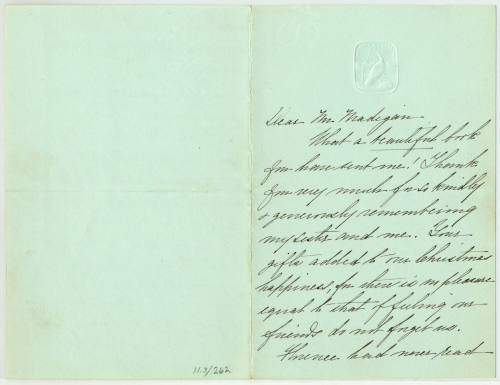 Dear Mr. Madigan
What a beautiful book
you have sent me! Thank
you very much for so kindly
& generously remembering
my sister and me. Your
gifts added to our Christmas
happiness, for there is no pleasure
equal to that of feeling our
friends do not forget us.
Florence had never read
11.3/262